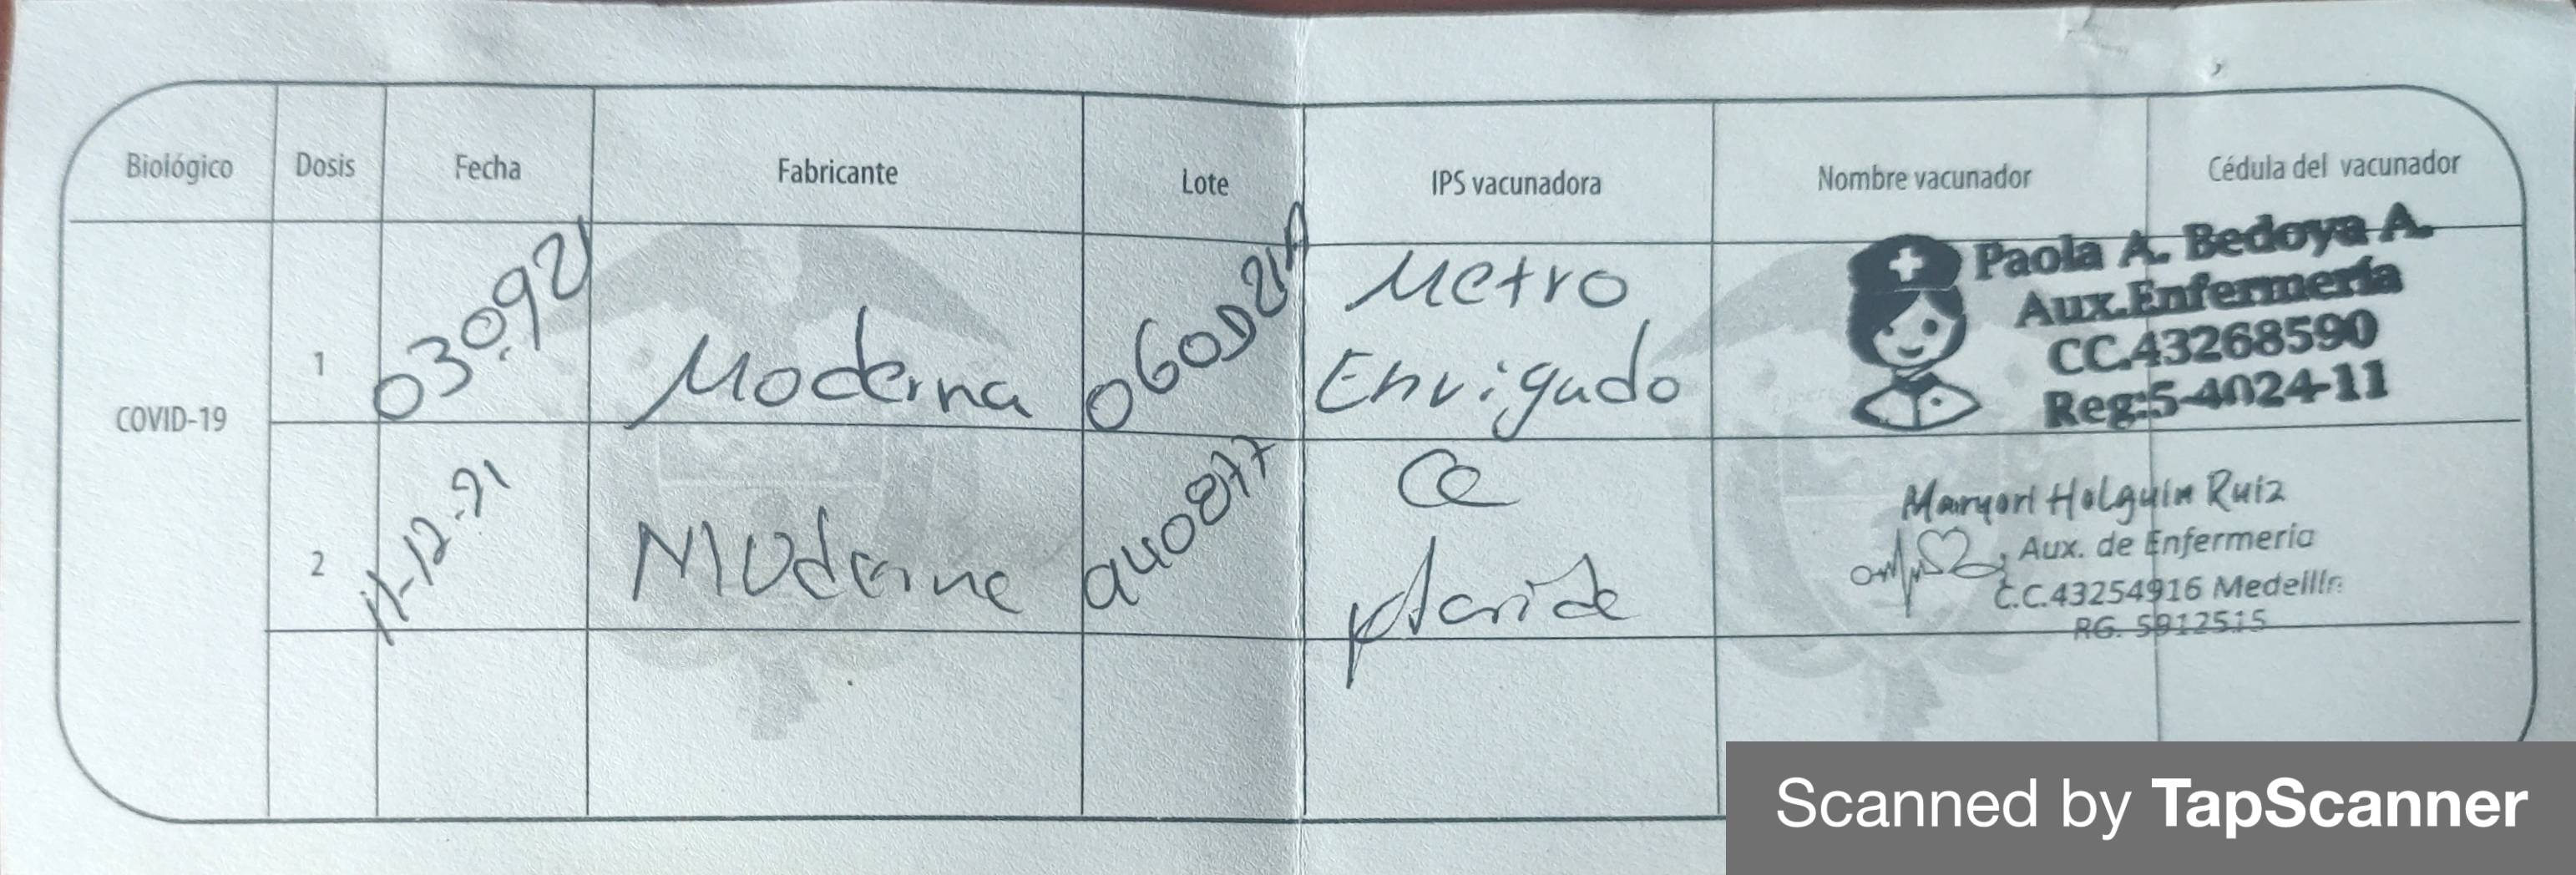 Biológico Dosis Fecha Fabricante Lote IPS vacunadora Nombre vacunador Cédula del vacunador
COVID-19
1 03.09.21 Moderna 060D21A Metro
Envigado
Paola A. Bedoya A.
Aux.Enfermería
CC.43268590
Reg:5-4024-11
2 11-12-21 Moderna
Maryori Holguin Ruiz
Aux. de Enfermeria
C.C.43254916 Medellín
RG. 5912515
Scanned by TapScanner